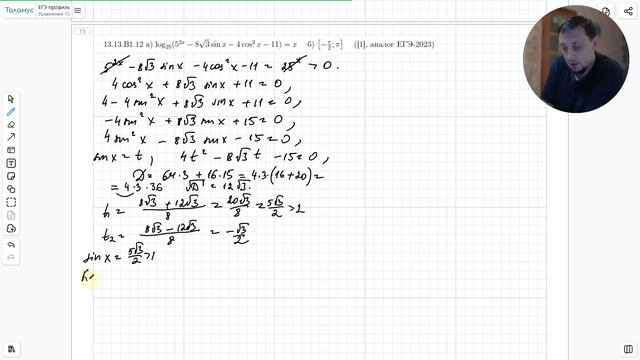 Таламус
ЕГЭ профиль
Уравнения 13
15
13.13.B1.12 a) log₂₅(5²ˣ − 8√3 sin x − 4 cos² x − 11) = x б) [−π/2; π] ([1], аналог ЕГЭ-2023)
5²ˣ − 8√3 sin x − 4cos²x − 11 = 25ˣ > 0.
4cos²x + 8√3 sin x + 11 = 0,
4 − 4sin²x + 8√3 sin x + 11 = 0,
−4sin²x + 8√3 sin x + 15 = 0,
4sin²x − 8√3 sin x − 15 = 0,
sin x = t, 4t² − 8√3 t − 15 = 0,
D = 64·3 + 16·15 = 4·3·(16+20) =
= 4·3·36 √D = 12√3.
t₁ = (8√3 + 12√3)/8 = 20√3/8 = 5√3/2 > 1
t₂ = (8√3 − 12√3)/8 = −√3/2
sin x = 5√3/2 > 1